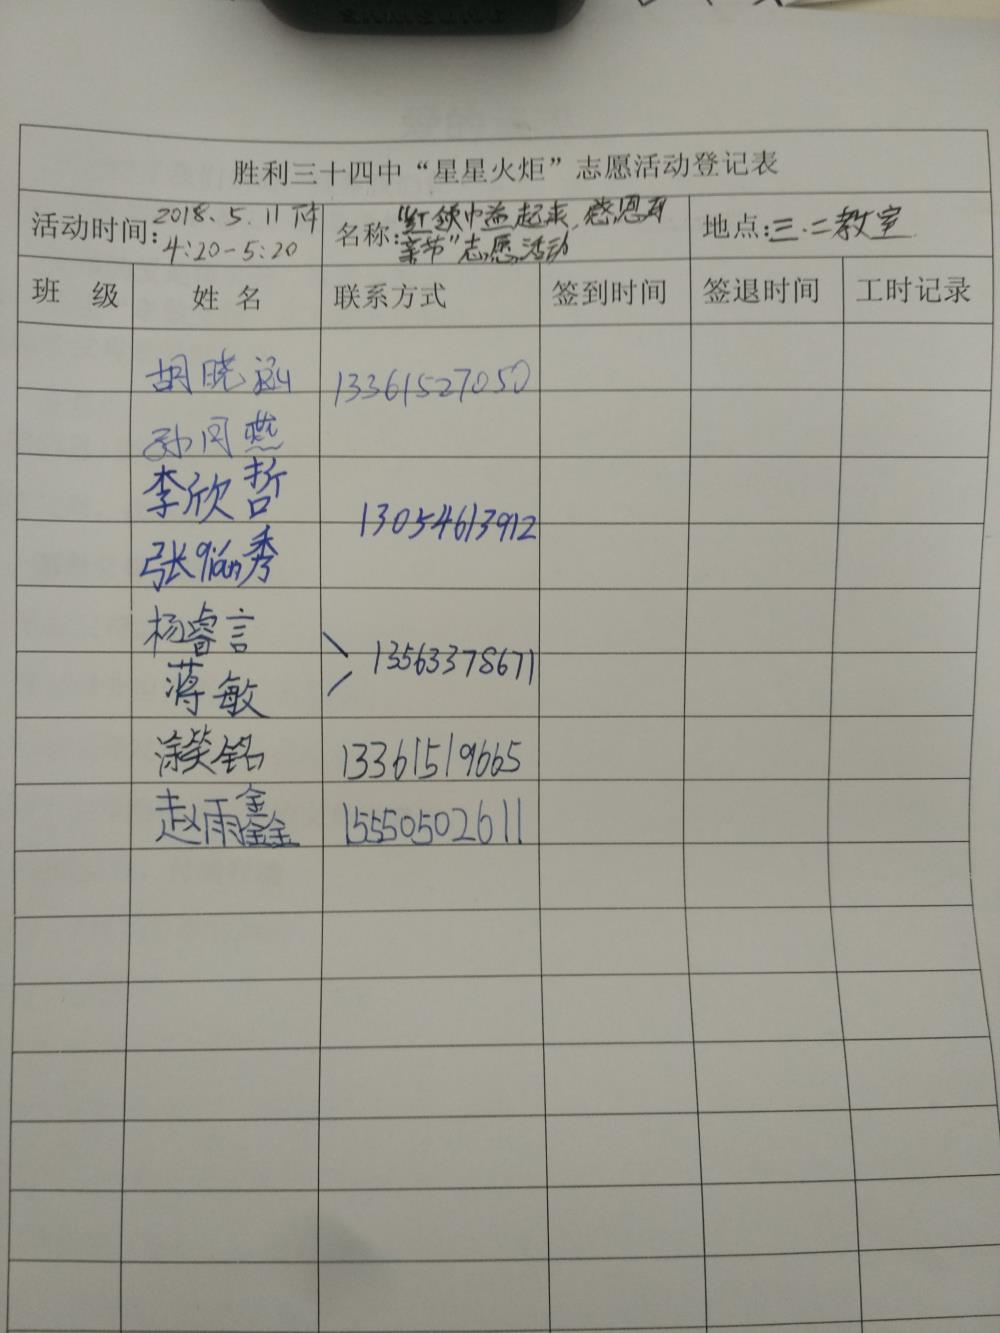 胜利三十四中“星星火炬”志愿活动登记表
活动时间: 2018.5.11下午 4:20-5:20
名称: “红领巾益起来,感恩母亲节”志愿活动
地点: 三.二教室
班 级 姓 名 联系方式 签到时间 签退时间 工时记录
胡晓涵 13361527050
孙月燕
李欣哲 13054613912
张qian秀
杨睿言 13563378671
蒋敏
涂荧铭 13361519665
赵雨鑫 15550502611